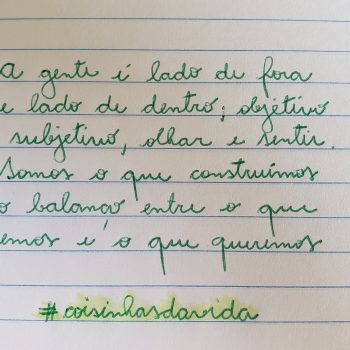 A gente é lado de fora
e lado de dentro; objetivo
subjetivo, olhar e sentir.
Somos o que construímos
o balanço entre o que
emos e o que queremos
#coisinhasdavida